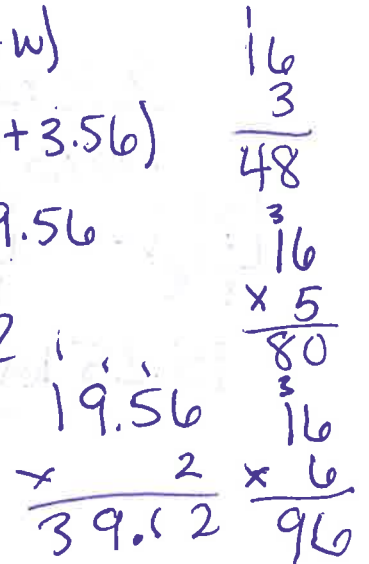 w)
+3.56)
9.56
2
1 1 1
19.56
× 2
39.12
16
3
48
3
16
× 5
80
3
16
× 6
96